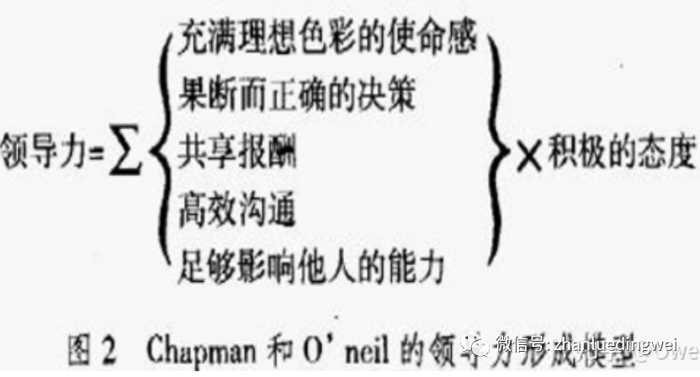 充满理想色彩的使命感
果断而正确的决策
领导力=∑
共享报酬
×积极的态度
高效沟通
足够影响他人的能力
图2 Chapman 和 O’neil 的领导力形成模型
微信号: zhanluedingwei